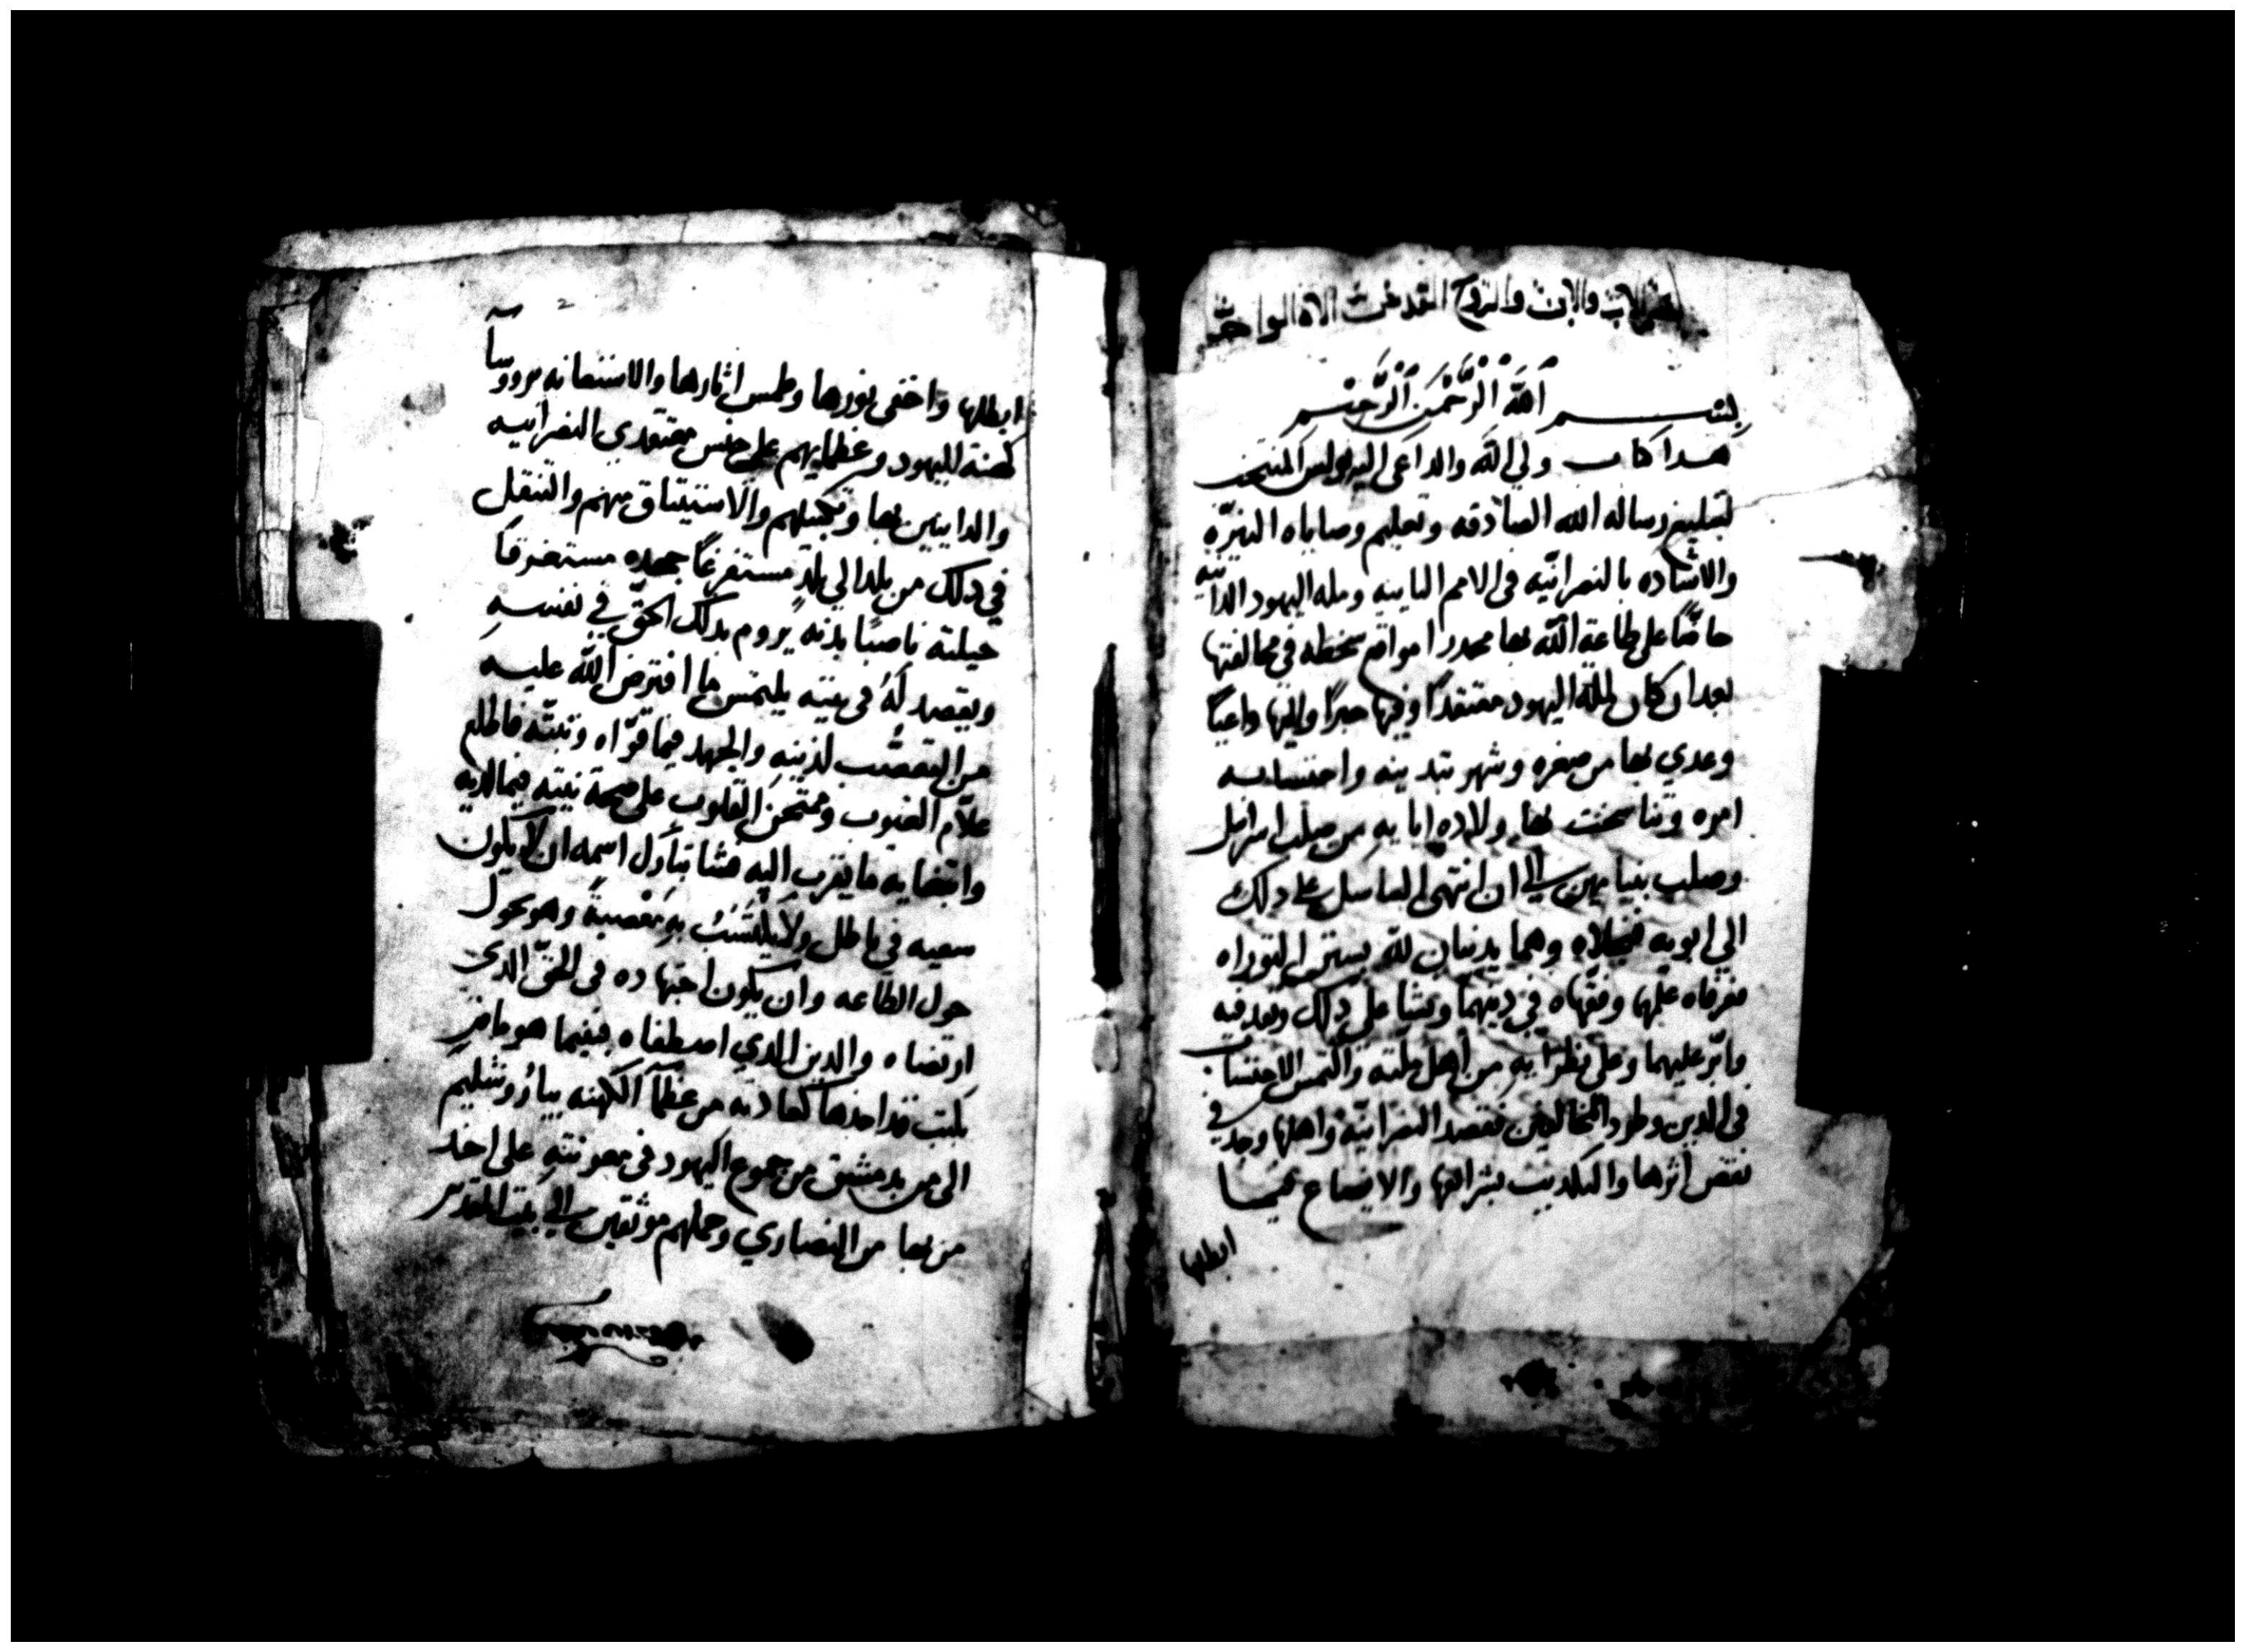 بسم الاب والابن والروح القدس الاه الواحد
بسم الله الرحمن الرحيم
هدا كتاب ولي الله والداعي اليه بولس المنتخب
لتبليغ رساله الله الصادقه وتعليم وصاياه النيّره
والاشاده بالنصرانيّه في الامم النايه ومله اليهود الدانيه
حاضّا على طاعة الله بها محدرا مواقع سخطه في مخالفتها
بعد ان كان لملّة اليهود معتقدًا وفيها حبرًا واليها داعيًا
وعدي بها من صغره وشهر بتدينه واحتسابه
امره وتناسخت بها ولاده ابايه من صلب اسرايل
وصلب بنيامين الي ان انتهى التناسل على دلك
الي ابويه فنجلاه وهما يدينان لله بسنن التوراه
فعرفاه علمها وفقّهاه في دينهما ونشا على دلك وبعد فيه
وابرّ عليهما وعلى نظرايه من أهل ملّته والتمس الاحتساب
في الدين وطرد المخالفين فقصد النصرانيّة واهلها وجدّ في
نقض أثرها والتكديب بشرايعها والايضاع فيما
ابطلها
ابطلها واخفى نورها وطمس اثارها والاستعانه برووسآ
كهنة اليهود وعظمايهم على حبس معتقدي النصرانيه
والداينين بها وتكبيلهم والاستيثاق منهم والتنقل
في دلك من بلد الي بلدٍ مستفرغًا جهده مستغرقًا
حيلته ناصبًا بدنه يروم بدلك الحقّ في نفسه
ويقصد لهُ في نيته يلتمس ما افترض الله عليه
من التعصُّب لدينهِ والجهد فيما قرّاه وثبتّه فاطلع
علاّم الغيوب وممتحن القلوب على صحة نيته فيما لديه
وابتغايه ما يقرب اليه فشا تبارك اسمه ان لا يكون
سعيه في باطل ولا يلتبسُ به معْصيةً وهو يحول
حول الطاعه وان يكون اجتهاده في الحقّ الدي
ارتضاه والدين الدي اصطفاه فبينما هو مار
بكتب قد اخدها كعادته من عظمآ الكهنه بياروشليم
الى من بدمشق من جموع اليهود في معونته على اخد
من بها من النصاري وحملهم موثقين الي بيت المقدس